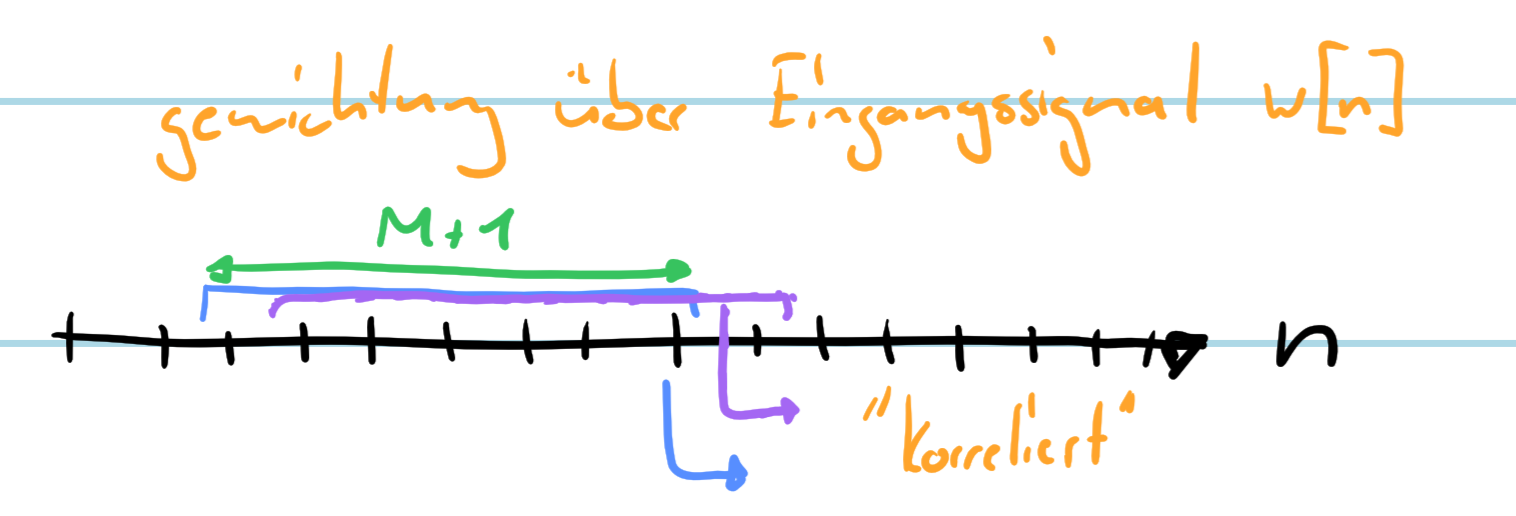 gewichtung über Eingangssignal w[n]
M+1
n
"korreliert"